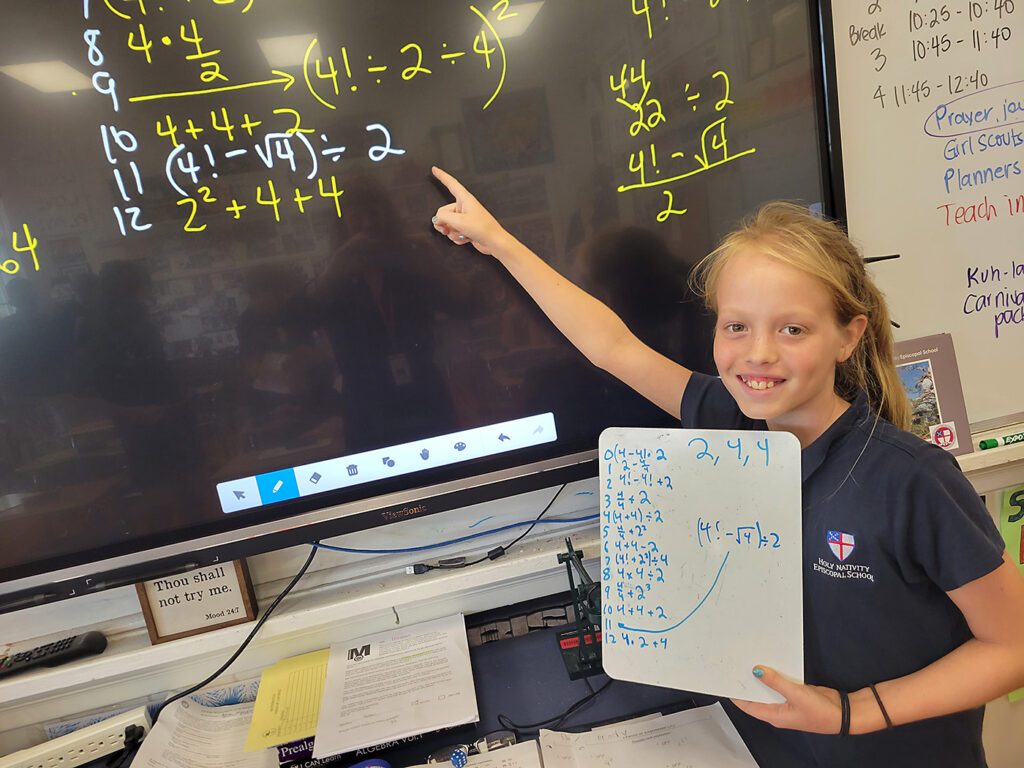 8 4 • 4/2
9 → (4! ÷ 2 ÷ 4)²
10 4 + 4 + 2
11 (4! − √4) ÷ 2
12 2² + 4 + 4
64
44
22 ÷ 2
4! − √4
2
Break 10:25 - 10:40
3 10:45 - 11:40
4 11:45 - 12:40
Prayer, jou
Girl Scouts
Planners
Teach in
Kuh-la
Carniva
pack
Episcopal School
EXPO
ViewSonic
Thou shall
not try me.
Mood 24:7
2, 4, 4
0 (4-4)• 2
1 2 - 4/4
2 4! - 4! + 2
3 4/4 + 2
4 (4+4) ÷ 2
5 4/4 + 2²
6 4+4-2
7 (4! + 2²) ÷ 4
8 4 x 4 ÷ 2
9 4/4 + 2³
10 4 + 4 + 2
11
12 4 • 2 + 4
(4! - √4) ÷ 2
HOLY NATIVITY
EPISCOPAL SCHOOL
M
Prealg
ALGEBRA
I CAN Learn